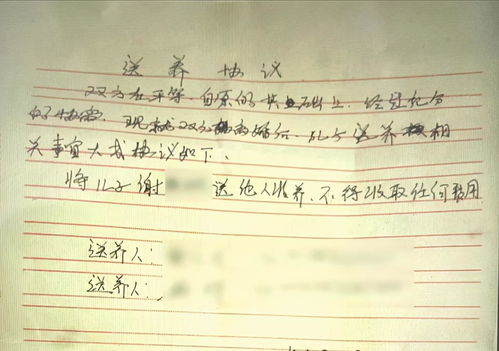 送养协议
双方在平等、自愿的基础上，经过充分
的协商，现就双方离婚后，儿子送养相
关事宜达成协议如下、
将儿子谢 送他人收养、不得收取任何费用
送养人：
送养人：